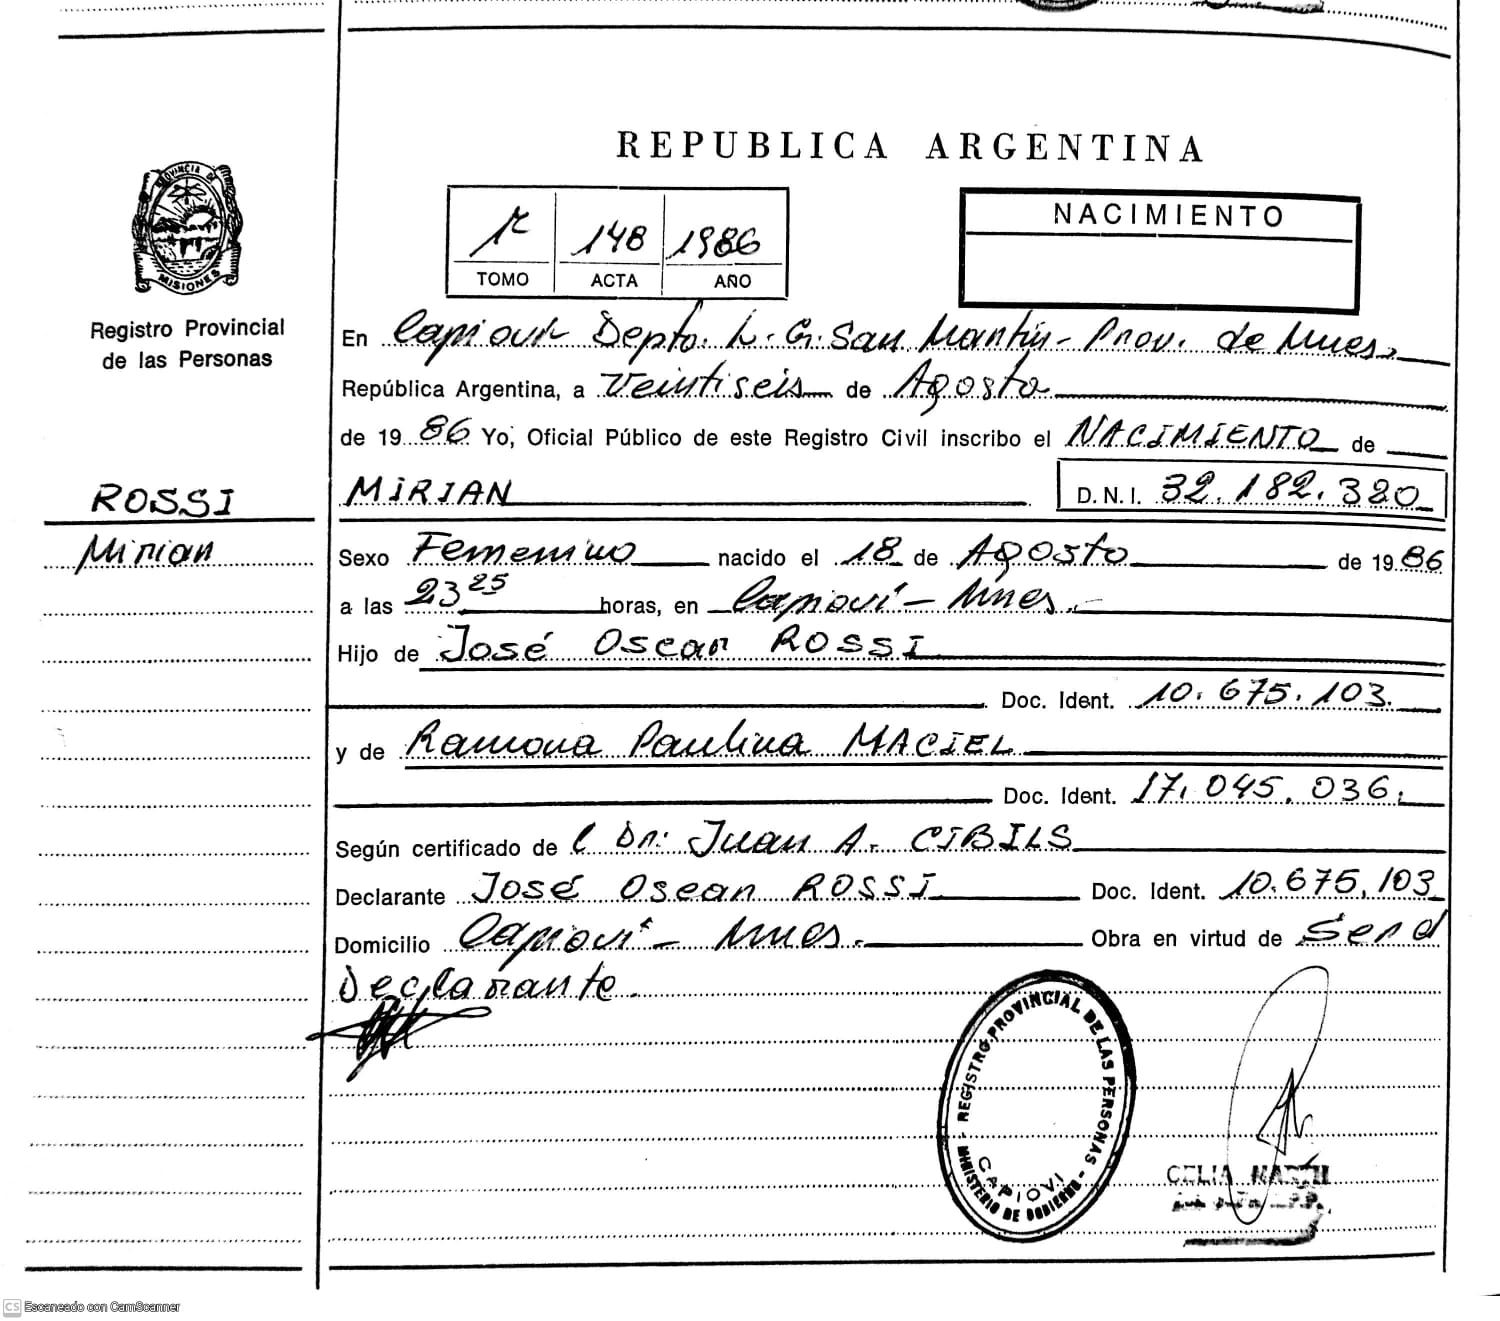 REPUBLICA ARGENTINA
PROVINCIA DE
MISIONES
Registro Provincial
de las Personas
148 1986
TOMO ACTA AÑO
NACIMIENTO
En Capioví Depto. L. G. San Martín - Prov. de Mnes.
República Argentina, a Veintiseis de Agosto
de 1986 Yo, Oficial Público de este Registro Civil inscribo el NACIMIENTO de
ROSSI
Mirian
MIRIAN D.N.I. 32.182.320
Sexo Femenino nacido el 18 de Agosto de 1986
a las 23 25 horas, en Capioví - Mnes.-
Hijo de José Oscar ROSSI
Doc. Ident. 10.675.103.
y de Ramona Paulina MACIEL
Doc. Ident. 17.045.036.
Según certificado de l Dr. Juan A. CIBILS
Declarante José Oscar ROSSI Doc. Ident. 10.675.103
Domicilio Capioví - Mnes. Obra en virtud de Ser el
Declarante.
REGISTRO PROVINCIAL DE LAS PERSONAS
MINISTERIO DE GOBIERNO
CAPIOVI
CELIA
CS Escaneado con CamScanner